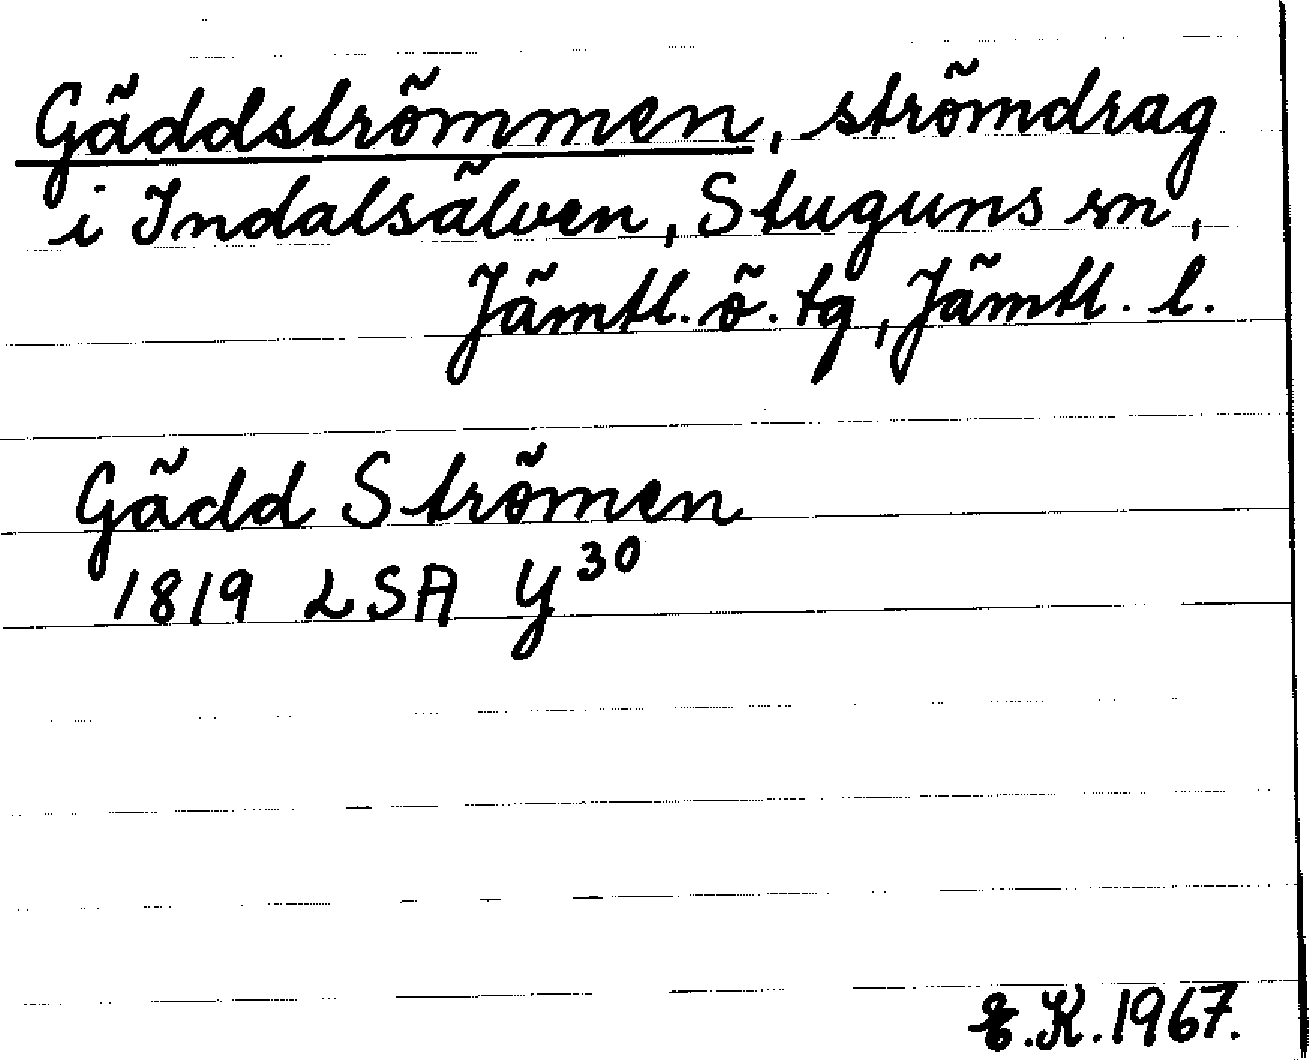 Gäddströmmen, strömdrag
i Indalsälven, Stuguns sn,
Jämtl. ö. tg, Jämtl. l.
Gädd Strömen
1819 LSA Y³⁰
E.K. 1967.